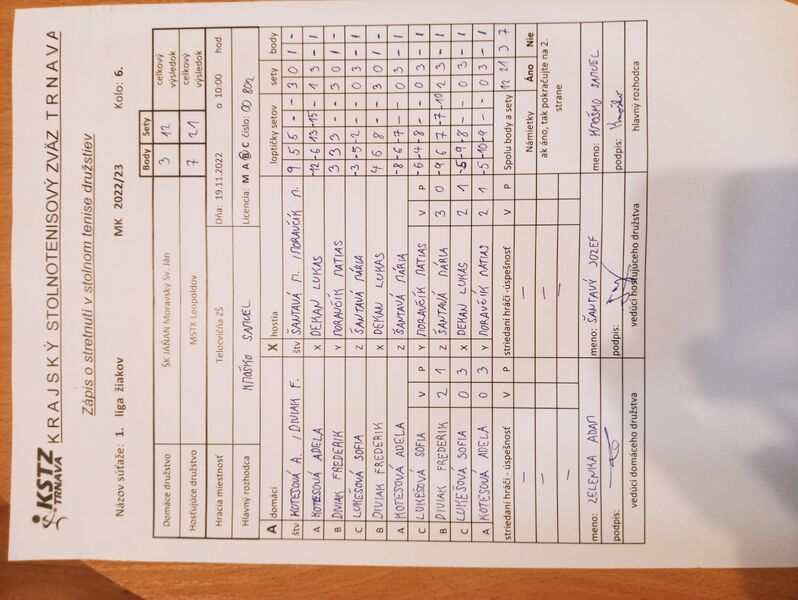 KSTZ
TRNAVA
KRAJSKÝ STOLNOTENISOVÝ ZVÄZ TRNAVA
Zápis o stretnutí v stolnom tenise družstiev
Názov súťaže: 1. liga žiakov MK 2022/23 Kolo: 6.
Body Sety celkový výsledok
Domáce družstvo ŠK JÁŇAN Moravský Sv. Ján 3 12
celkový výsledok
Hosťujúce družstvo MSTK Leopoldov 7 21
Hracia miestnosť Telocvičňa ZŠ Dňa: 19.11.2022 o 10:00 hod.
Hlavný rozhodca KMOŠKO SAMUEL Licencia: M A B C číslo: 00 802
A domáci X hostia loptičky setov sety body
štv KOTESOVÁ A. /DIVIAK F. štv ŠANTAVÁ M. /MORAVČÍK M. 9 5 5 - - 3 0 1 -
A KOTESOVÁ ADELA X DEKAN LUKAS -12 -6 13 -15 - 1 3 - 1
B DIVIAK FREDERIK Y MORAVČÍK MATIAS 3 3 3 - - 3 0 1 -
C LUKEŠOVÁ SOFIA Z ŠANTAVÁ MÁRIA -3 -5 -2 - - 0 3 - 1
B DIVIAK FREDERIK X DEKAN LUKAS 4 6 8 - - 3 0 1 -
A KOTESOVÁ ADELA Z ŠANTAVÁ MÁRIA -8 -6 -7 - - 0 3 - 1
C LUKEŠOVÁ SOFIA V P Y MORAVČÍK MATIAS V P -6 -4 -8 - - 0 3 - 1
B DIVIAK FREDERIK 2 1 Z ŠANTAVÁ MÁRIA 3 0 -9 6 7 -7 -10 2 3 - 1
C LUKEŠOVÁ SOFIA 0 3 X DEKAN LUKAS 2 1 -9 -8 - - 0 3 - 1
A KOTESOVÁ ADELA 0 3 Y MORAVČÍK MATIAS 2 1 -10 -9 - - 0 3 - 1
striedaní hráči - úspešnosť V P striedaní hráči -úspešnosť V P Spolu body a sety 12 21 3 7
Námietky Áno Nie
ak áno, tak pokračujte na 2. strane
meno: ZELENKA ADAM meno: ŠANTAVÝ JOZEF meno: KMOŠKO SAMUEL
podpis: podpis: podpis: Kmoško
vedúci domáceho družstva vedúci hosťujúceho družstva hlavný rozhodca